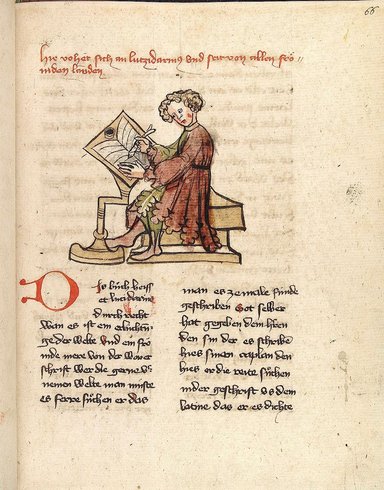 66
hie vohet sich an lutzidarius vnd seit von allen frö
mden landen
Dis bůch heiss
et lucidarius
durch recht
wan es ist ein erlüchtu
ge der welte Vnd ein frö
mde mere von der waren
schrift wer die gerne v
nemen welte man müste
es ferre sůchen er das
man es zemale funde
geschriben Got selber
hat gegeben dem herren
den sin der es schriben
hies sinen caplan den
hies er die rete sůchen
in der geschrift vs dem
latine das er es dichte